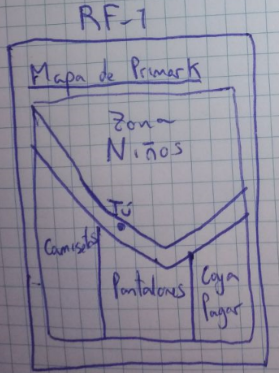 RF-1
Mapa de Primark
Zona
Niños
Tú
Camisetas
Pantalones
Caja
Pagar